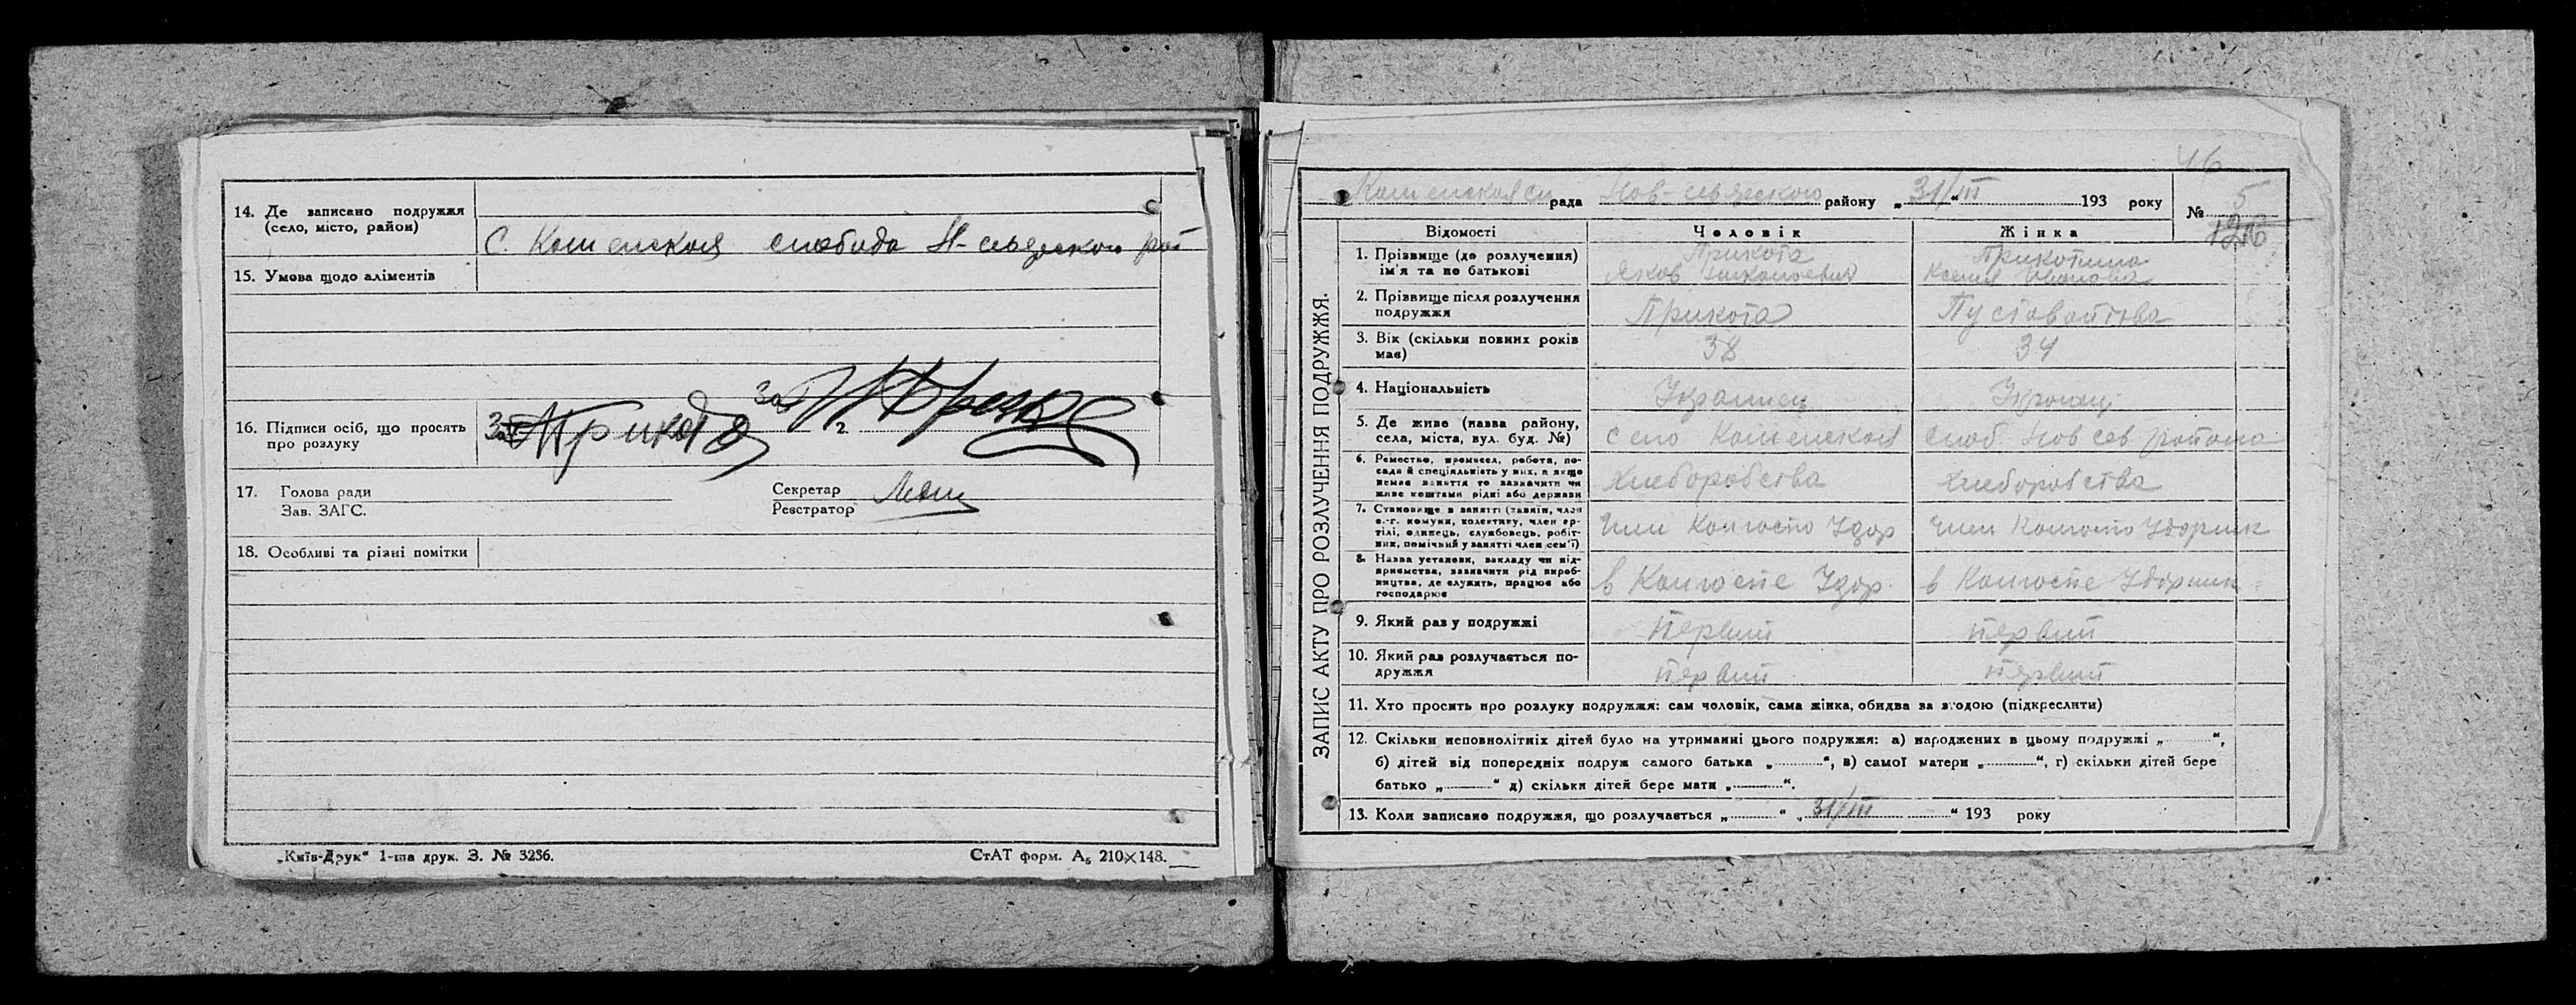 14. Де записано подружжя
(село, місто, район)
С. Каменская слобода Н-севдского рай
15. Умова щодо аліментів
16. Підписи осіб, що просять
про розлуку
За Прикота
2
За
17. Голова ради
Зав. ЗАГС.
Секретар
Реєстратор
18. Особливі та різні помітки
„Київ-Друк“ 1-ша друк. З. № 3236.
СтАТ форм. А₅ 210×148.
46
рада Нов-севдского району „ 31/III “ 193 року
№ 5
ЗАПИС АКТУ ПРО РОЗЛУЧЕННЯ ПОДРУЖЖЯ.
Відомості Чоловік Жінка
1. Прізвище (до розлучення)
ім'я та по батькові
Прикота
Яков
Прикотина
Ксения Ивановна
2. Прізвище після розлучення
подружжя
Прикота Пустовойтова
3. Вік (скільки повних років
має)
38 34
4. Національність
Украинец Украинц
5. Де живе (назва району,
села, міста, вул. буд. №)
село Каменская слоб Нов сев района
6. Ремество, промисел, робота, по-
сада й спеціяльність у них, а якщо
немає заняття то зазначити чи
живе коштами рідні або держави
Хлеборобства Хлеборобства
7. Становище в занятті (хазяїн, член
с.-г. комуни, колективу, член ар-
тілі, одинець, службовець, робіт-
ник, помічний у занятті член сем'ї)
Член Колгоспо Удар Член Колгоспо Ударник
8. Назва установи, закладу чи під-
приємства, зазначити рід вироб-
ництва, де служить, працює або
господарює
в Колгоспе Удар. в Колгоспе Ударник
9. Який раз у подружжі
первий первий
10. Який раз розлучається по-
дружжя
первий первий
11. Хто просить про розлуку подружжя: сам чоловік, сама жінка, обидва за згодою (підкреслити)
12. Скільки неповнолітніх дітей було на утриманні цього подружжя: а) народжених в цьому подружжі „ “,
б) дітей від попередніх подруж самого батька „ “, в) самої матери „ “, г) скільки дітей бере
батько „ “ д) скільки дітей бере мати „ “.
13. Коли записано подружжя, що розлучається „ “ „ 31/III “ 193 року